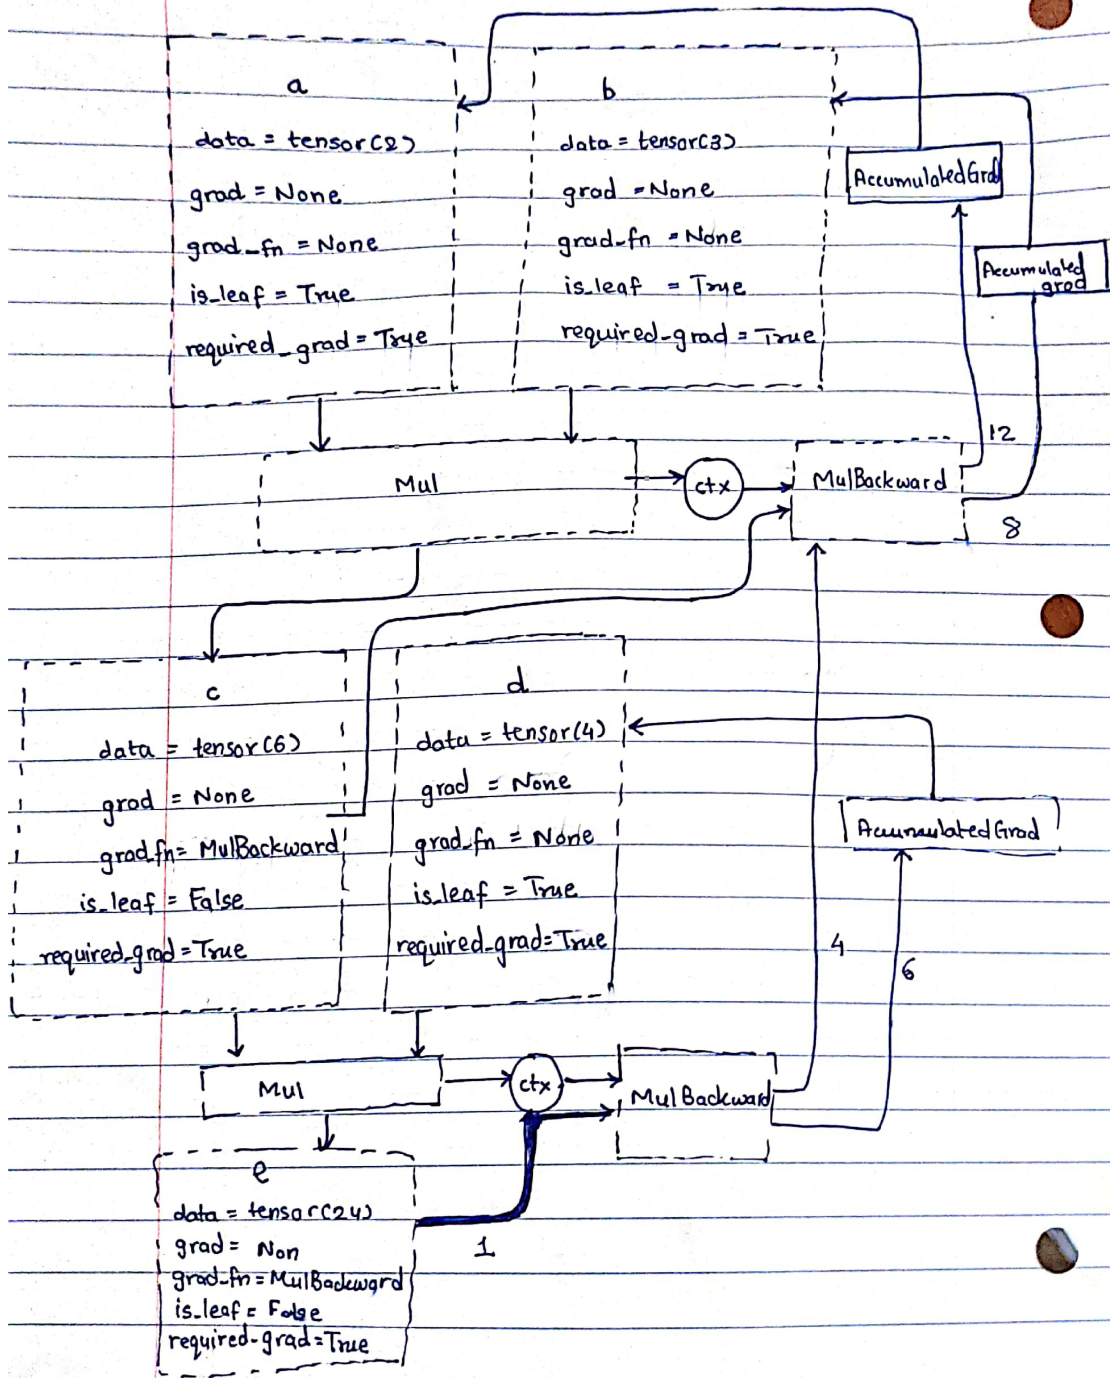 a
data = tensor(2)
grad = None
grad_fn = None
is_leaf = True
required_grad = True
b
data = tensor(3)
grad = None
grad_fn = None
is_leaf = True
required_grad = True
AccumulatedGrd
Accumulated
grad
Mul
ctx
MulBackward
12
8
c
data = tensor(6)
grad = None
grad_fn = MulBackward
is_leaf = False
required_grad = True
d
data = tensor(4)
grad = None
grad_fn = None
is_leaf = True
required_grad = True
AccumulatedGrad
4
6
Mul
ctx
MulBackward
e
data = tensor(24)
grad = Non
grad_fn = MulBackward
is_leaf = False
required-grad = True
1